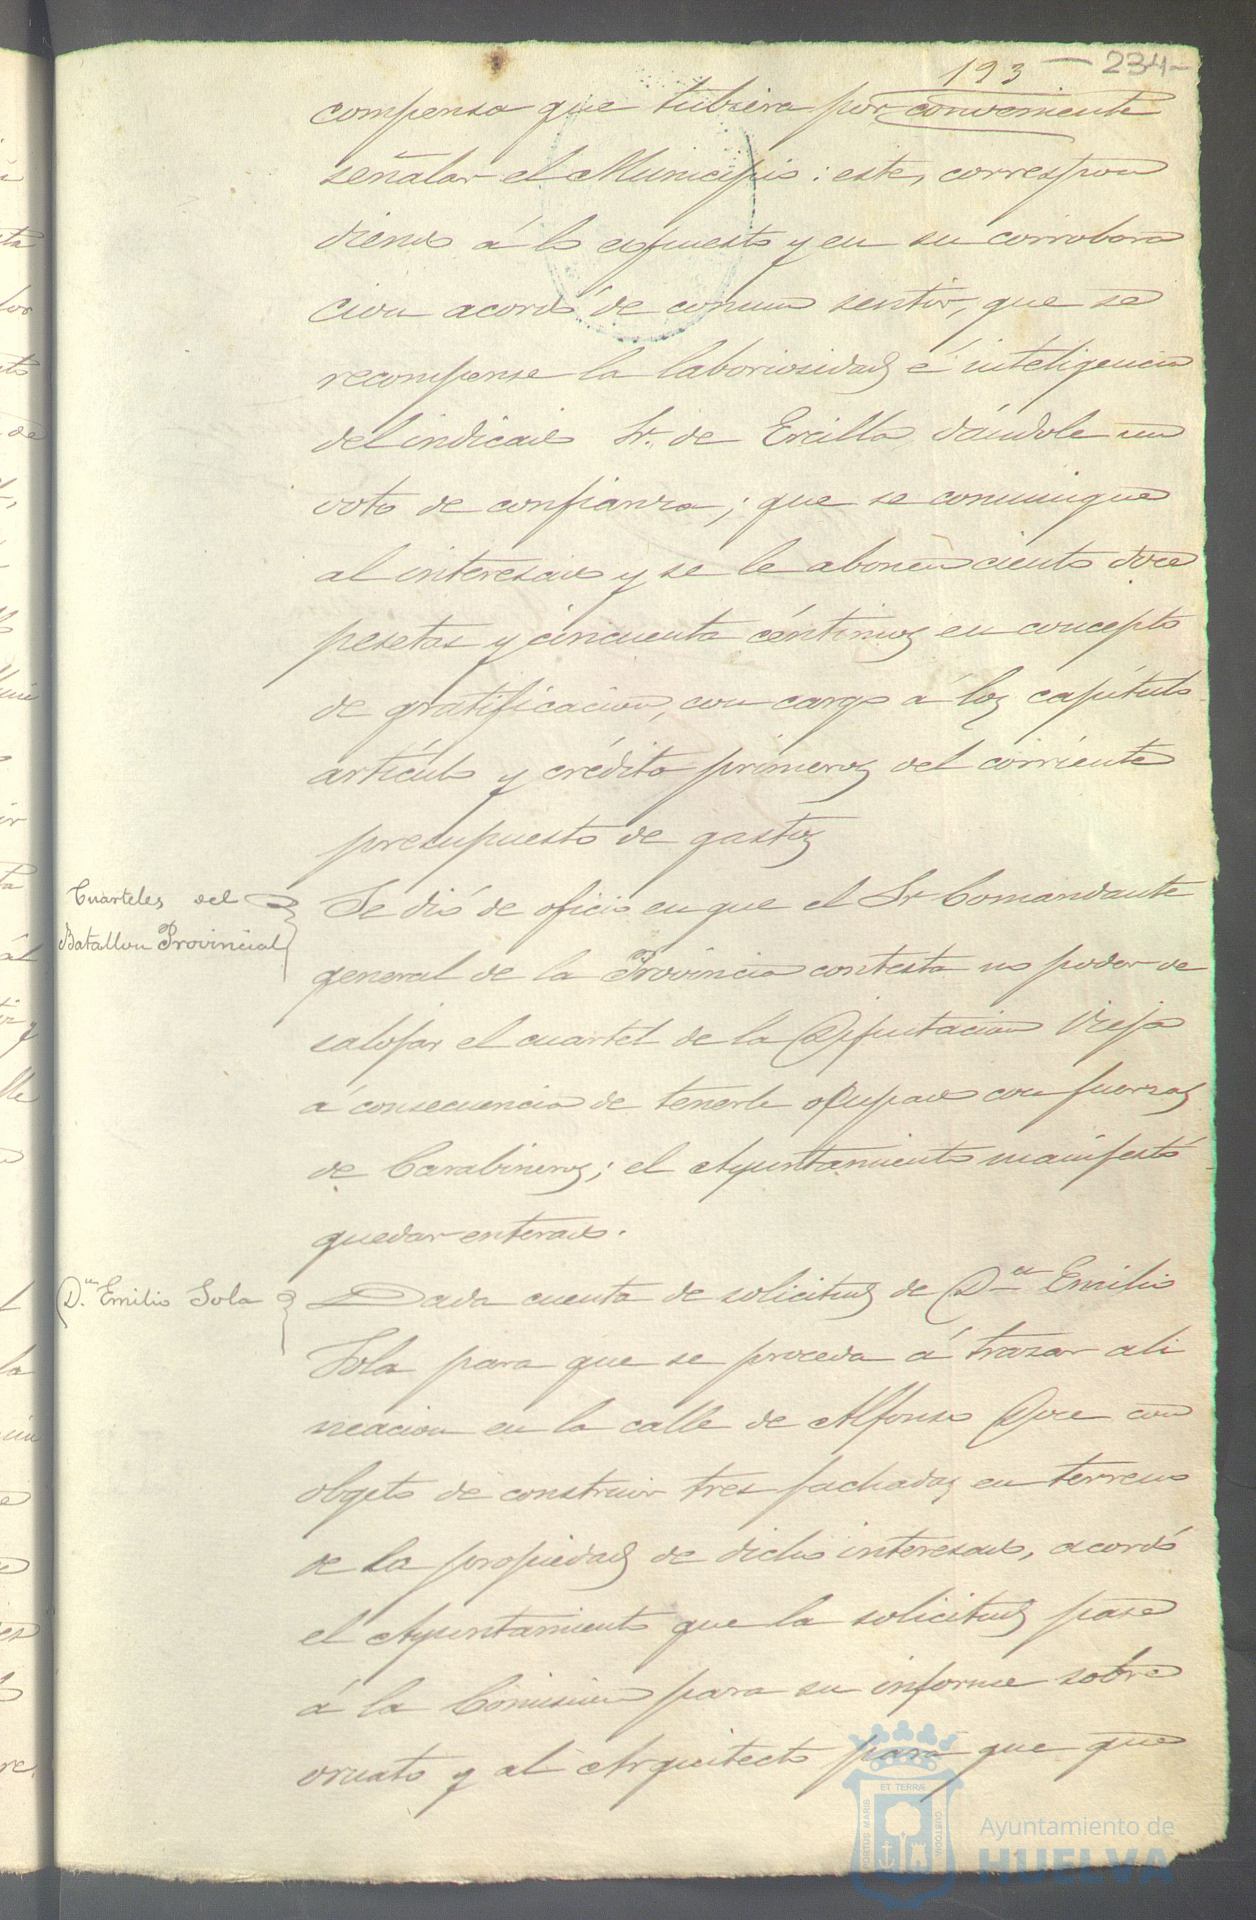 193 — 234-
compensa que tubiera por conveniente
señalar el Municipio: este, correspon
diendo á lo espuesto y en su corrobora
cion acordó de comun sentir, que se
recompense la laboriosidad é inteligencia
del indicado Sr. de Ercilla, dándole un
voto de confianza; que se comunique
al interesado y se le abonen ciento doce
pesetas y cincuenta céntimos en concepto
de gratificacion, con cargo á los capítulo
artículo y crédito primeros del corriente
presupuesto de gastos
Cuarteles del
Batallon Provincial
Se dió de oficio en que el Sr Comandante
general de la Provincia contesta no poder de
salojar el cuartel de la Diputacion Vieja
á consecuencia de tenerle ocupado con fuerzas
de Carabineros; el Ayuntamiento manifestó
quedar enterado.
D.n Emilio Sola
Dada cuenta de solicitud de D.n Emilio
Sola para que se proceda á trazar ali
neacion en la calle de Alfonso Doce con
objeto de construir tres fachadas en terreno
de la propiedad de dicho interesado, acordó
el Ayuntamiento que la solicitud pase
á la Comision para su informe sobre
ornato y al Arquitecto para que que
ET TERRÆ
PORTUS MARIS
CUSTODIA
Ayuntamiento de
HUELVA